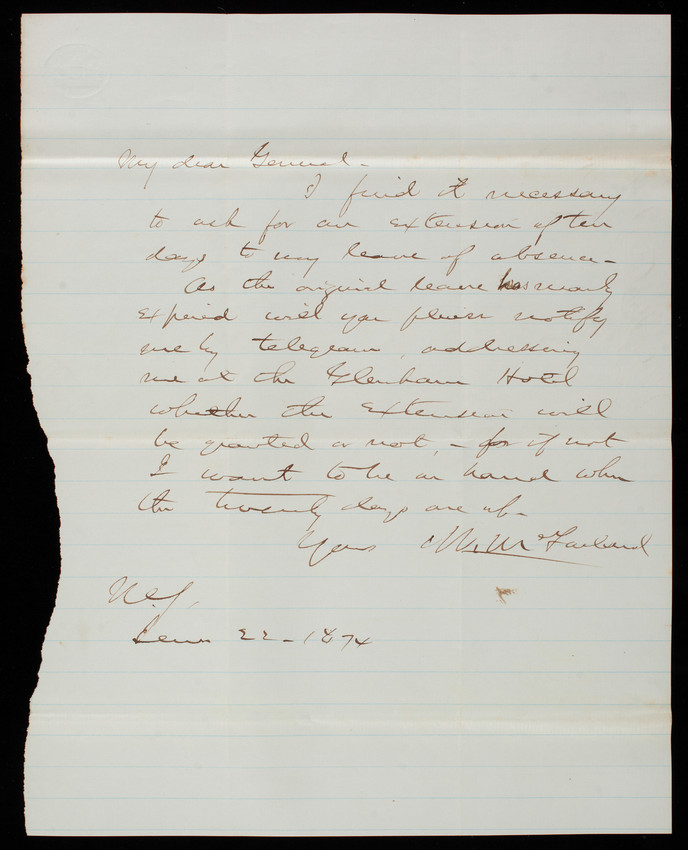 My dear General -
I find it necessary
to ask for an extension of ten
days to my leave of absence -
As the original leave has nearly
expired will you please notify
me by telegram, addressing
me at the Glenham Hotel
whether the extension will
be granted or not, - for if not
I want to be on hand when
the twenty days are up -
Yours M. McFarland
N.Y.
22 - 1874